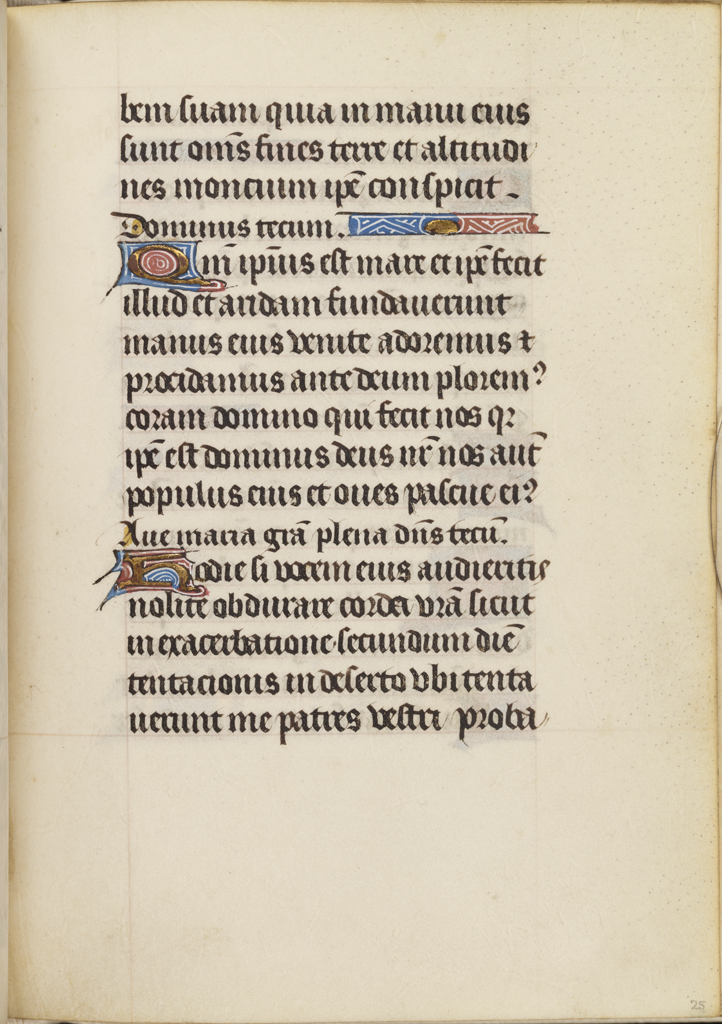 bem suam quia in manu eius
sunt om̄s fines terre et altitudi
nes moncium ip̄e conspicit.
Dominus tecum.
Qm̄ ipīus est mare et ip̄e fecit
illud et aridam fundauerunt
manus eius venite adoremus ⁊
procidamus ante deum plorem?
coram domino qui fecit nos qꝛ
ip̄e est dominus deus nr̄ nos aut̄
populus eius et oues pascue ei?
Aue maria gr̄a plena dn̄s tecū.
Hodie si vocem eius audieritis
nolite obdurare corda vr̄a sicut
in exacerbatione secundum diē
tentacionis in deserto vbi tenta
uerunt me patres vestri proba
25